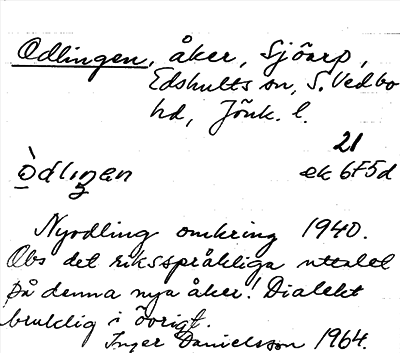 Odlingen, åker, Sjöarp,
Edshults sn, S. Vedbo
hd, Jönk. l.
21
òdlıŋen ek 6F5d
Nyodling omkring 1940.
Obs det riksspråkliga uttalet
på denna nya åker! Dialekt
bruklig i övrigt.
Inger Danielsson 1964.